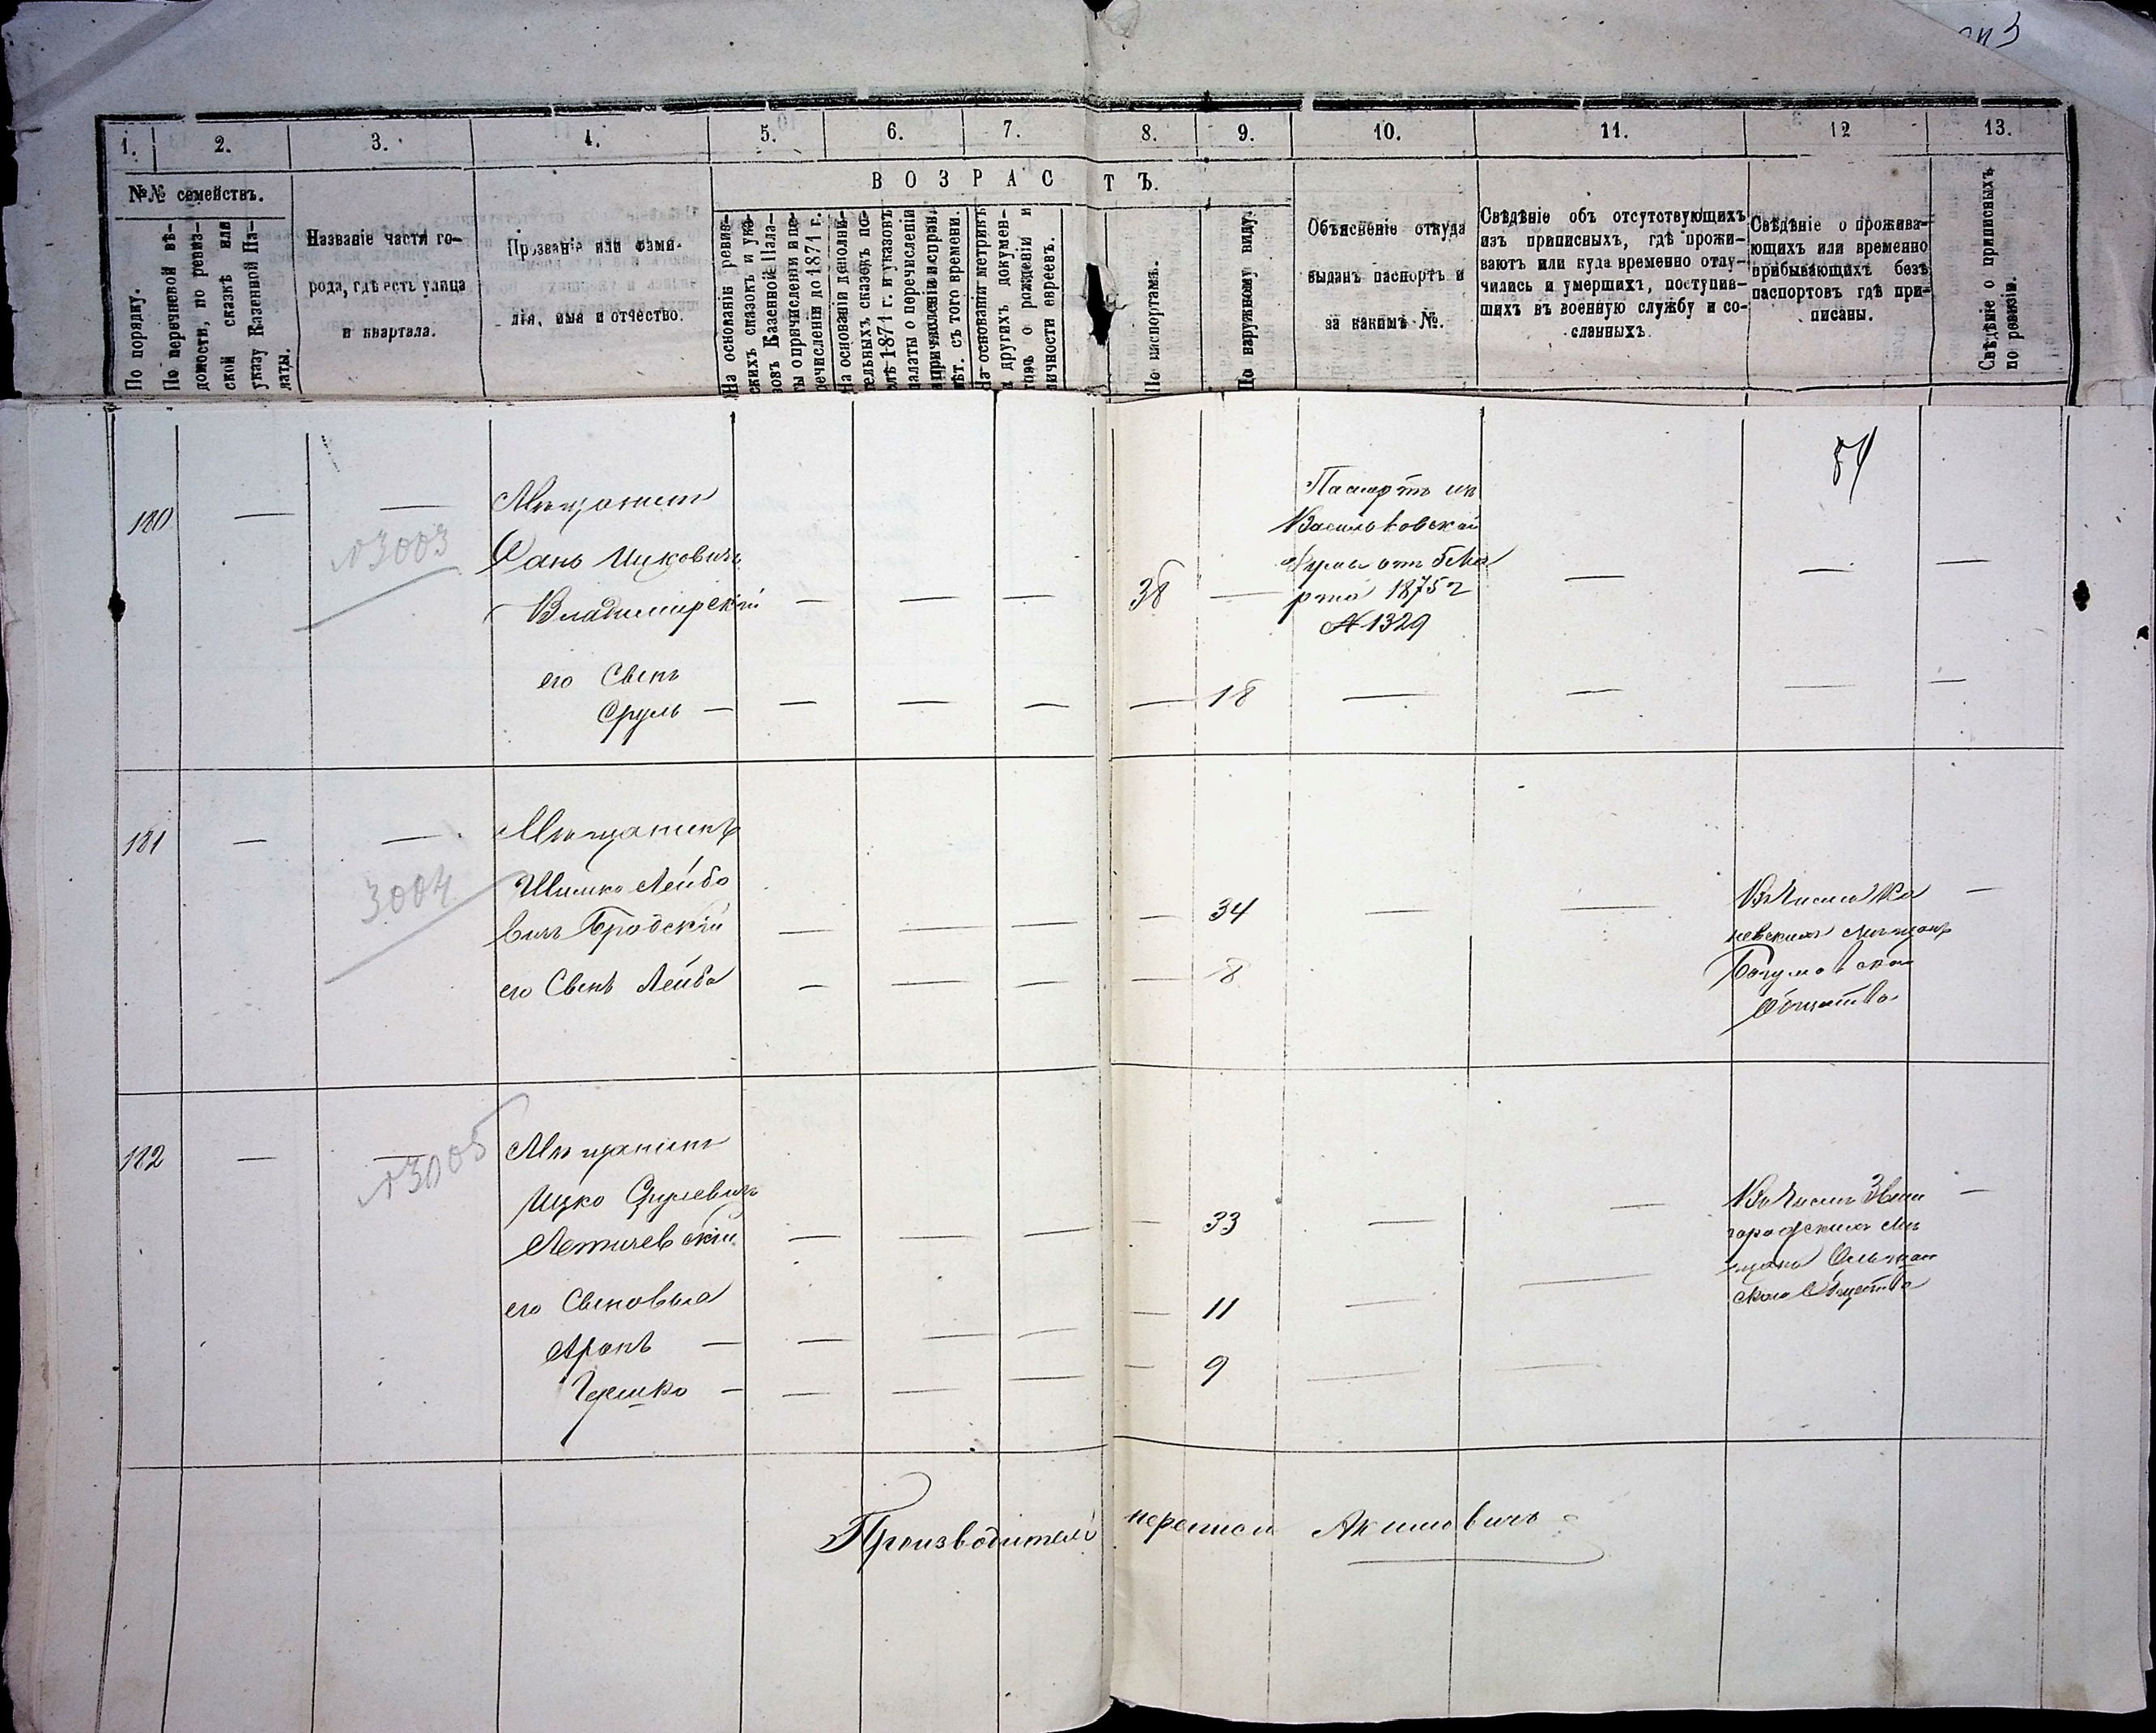 1. 2. 3. 4. 5. 6. 7. 8. 9. 10. 11. 12 13.
№№ семействъ.
В О З Р А С Т Ъ.
По порядку.
По перечневой вѣ-
домости, по ревиз-
ской сказкѣ или
указу Казенной Па-
латы.
Названіе части го-
рода, гдѣ есть улица
и квартала.
Прозваніе или фами-
лія, имя и отчество.
На основаніи ревиз-
скихъ сказокъ и ука-
зовъ Казенной Пала-
ты о причисленіи и пе-
речисленіи до 1871 г.
На основаніи дополни-
тельныхъ сказокъ по-
слѣ 1871 г. и указовъ
палаты о перечисленіи
и причисленіи исторіи.
лѣт. съ того времени.
На основаніи метрикъ
и других докумен-
товъ о рожденіи и
личности евреевъ.
По паспортамъ.
По наружному виду.
Объясненіе откуда
выданъ паспортъ и
за какимъ №.
Свѣдѣніе объ отсутствующихъ
изъ приписныхъ, гдѣ прожи-
ваютъ или куда временно отлу-
чились и умершихъ, поступив-
шихъ въ военную службу и со-
сланныхъ.
Свѣдѣніе о прожива-
ющихъ или временно
прибывающихъ безъ
паспортовъ гдѣ при-
писаны.
Свѣдѣніе о приписныхъ
по ревизіи.
180 — —
№3003
Мѣщанинъ
Ицковичъ
Владимирскій — — — 38 —
Паспортъ изъ
Васильковской
Думы отъ 5 Ма
рта 1875 г
№ 1329
— — —
его Сынъ
Сруль — — — — — 18 — — — —
181 — —
3004
Мѣщанинъ
Шимко Лейбо
вичъ Бродскій — — — — 34 — —
Въ числѣ Ка
невскихъ мѣщанъ
Общества
—
его Сынъ Лейба — — — — 8
182 — —
№3005
Мѣщанинъ
Ицко Срулевичъ
Летичевскій — — — — 33 — —
Въ числѣ Звени
городскихъ мѣ
щанъ Ольшан
скаго Общества
—
его Сыновья
Аронъ — — — — — 11 — —
Гершко — — — — — 9 — —
Производитель переписи Акимовичъ